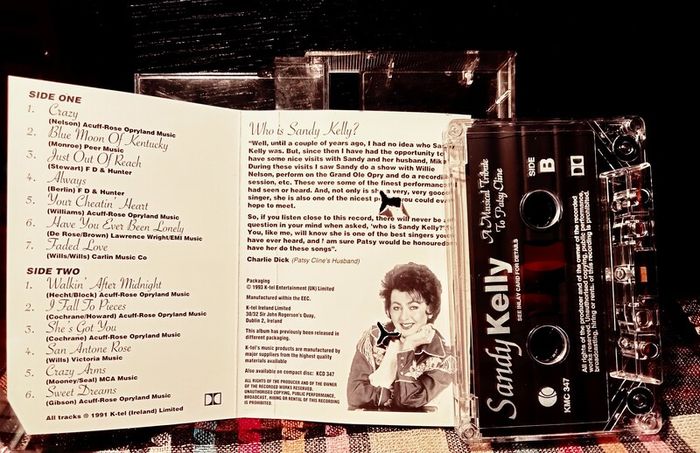 SIDE ONE
1. Crazy
(Nelson) Acuff-Rose Opryland Music
2. Blue Moon Of Kentucky
(Monroe) Peer Music
3. Just Out Of Reach
(Stewart) F D & Hunter
4. Always
(Berlin) F D & Hunter
5. Your Cheatin' Heart
(Williams) Acuff-Rose Opryland Music
6. Have You Ever Been Lonely
(De Rose/Brown) Lawrence Wright/EMI Music
7. Faded Love
(Wills/Wills) Carlin Music Co
SIDE TWO
1. Walkin' After Midnight
(Hecht/Block) Acuff-Rose Opryland Music
2. I Fall To Pieces
(Cochrane/Howard) Acuff-Rose Opryland Music
3. She's Got You
(Cochrane) Acuff-Rose Opryland Music
4. San Antone Rose
(Wills) Victoria Music
5. Crazy Arms
(Mooney/Seal) MCA Music
6. Sweet Dreams
(Gibson) Acuff-Rose Opryland Music
All tracks ℗ 1991 K-tel (Ireland) Limited
Who is Sandy Kelly?
"Well, until a couple of years ago, I had no idea who
Kelly was. But, since then I have had the opportunity
have some nice visits with Sandy and her husband,
During these visits I saw Sandy do a show with Willie
Nelson, perform on the Grand Ole Opry and do a
session, etc. These were some of the finest
had seen or heard. And, not only is a very, very
singer, she is also one of the nicest could
hope to meet.
So, if you listen close to this record, there will never be
question in your mind when asked, 'who is Sandy Kelly?'
You, like me, will know she is one of the best singers
have ever heard, and I am sure Patsy would be honoured
have her do these songs".
Charlie Dick (Patsy Cline's Husband)
Packaging
© 1993 K-tel Entertainment (UK) Limited
Manufactured within the EEC.
K-tel Ireland Limited
30/32 Sir John Rogerson's Quay,
Dublin 2, Ireland
This album has previously been released in
different packaging.
K-tel's music products are manufactured by
major suppliers from the highest quality
materials available
Also available on compact disc: KCD 347
ALL RIGHTS OF THE PRODUCER AND OF THE OWNER
OF THE RECORDED WORKS RESERVED.
UNAUTHORISED COPYING, PUBLIC PERFORMANCE,
BROADCASTING, HIRING OR RENTAL OF THIS RECORDING
IS PROHIBITED.
Sandy Kelly
A Musical Tribute
To Patsy Cline
SEE INLAY CARD FOR DETAILS
SIDE
B
K
KMC 347
All rights of the producer and of the owner of the recorded
works reserved. Unauthorised copying, public performance,
broadcasting, hiring or rental of this recording is prohibited.